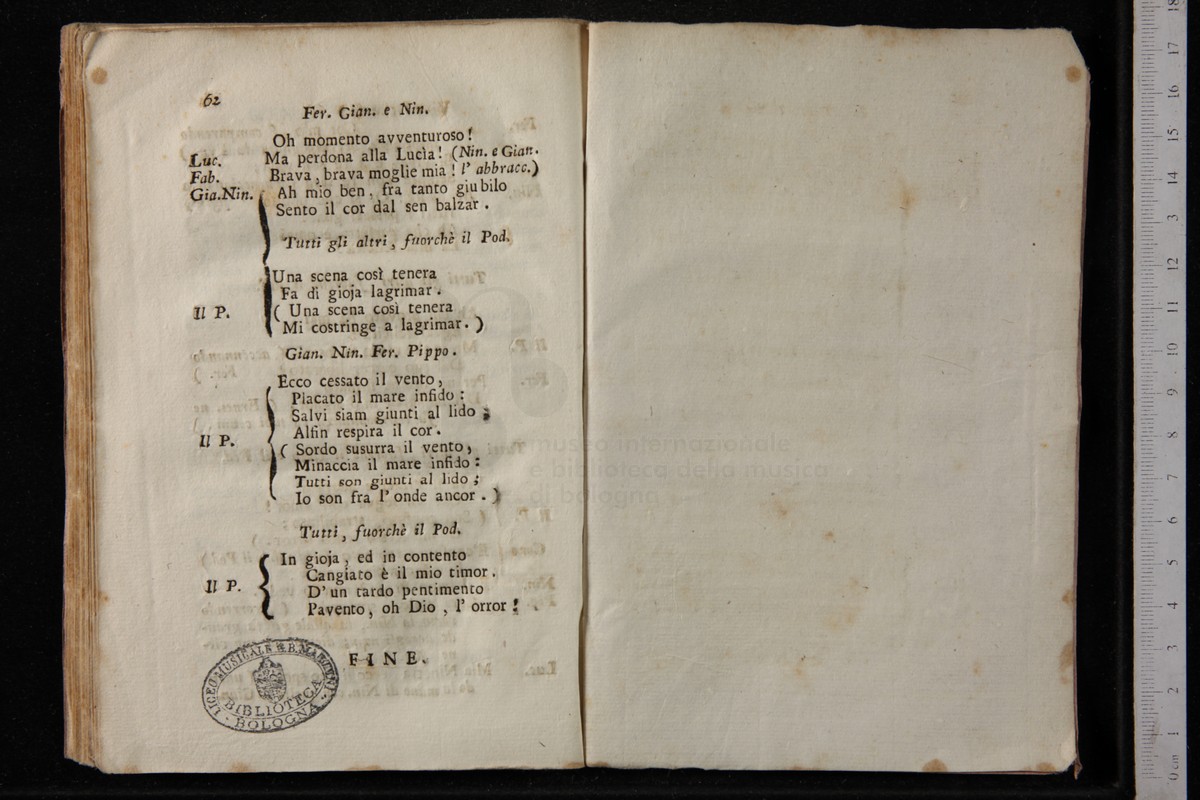 62
Fer. Gian. e Nin.
Oh momento avventuroso!
Luc. Ma perdona alla Lucìa! (Nin. e Gian.
Fab. Brava, brava moglie mia! l' abbracc.)
Gia.Nin. Ah mio ben, fra tanto giubilo
Sento il cor dal sen balzar.
Tutti gli altri, fuorchè il Pod.
Una scena così tenera
Fa di gioja lagrimar.
Il P. ( Una scena così tenera
Mi costringe a lagrimar. )
Gian. Nin. Fer. Pippo.
Ecco cessato il vento,
Placato il mare infido:
Salvi siam giunti al lido;
Alfin respira il cor.
Il P. ( Sordo susurra il vento,
Minaccia il mare infido:
Tutti son giunti al lido;
Io son fra l' onde ancor. )
Tutti, fuorchè il Pod.
In gioja, ed in contento
Cangiato è il mio timor.
Il P. D' un tardo pentimento
Pavento, oh Dio, l' orror!
FINE.
LICEO MUSICALE G.B. MARTINI
BIBLIOTECA
BOLOGNA
museo internazionale
e biblioteca della musica
di bologna
0 cm 1 2 3 4 5 6 7 8 9 10 11 12 13 14 15 16 17 18